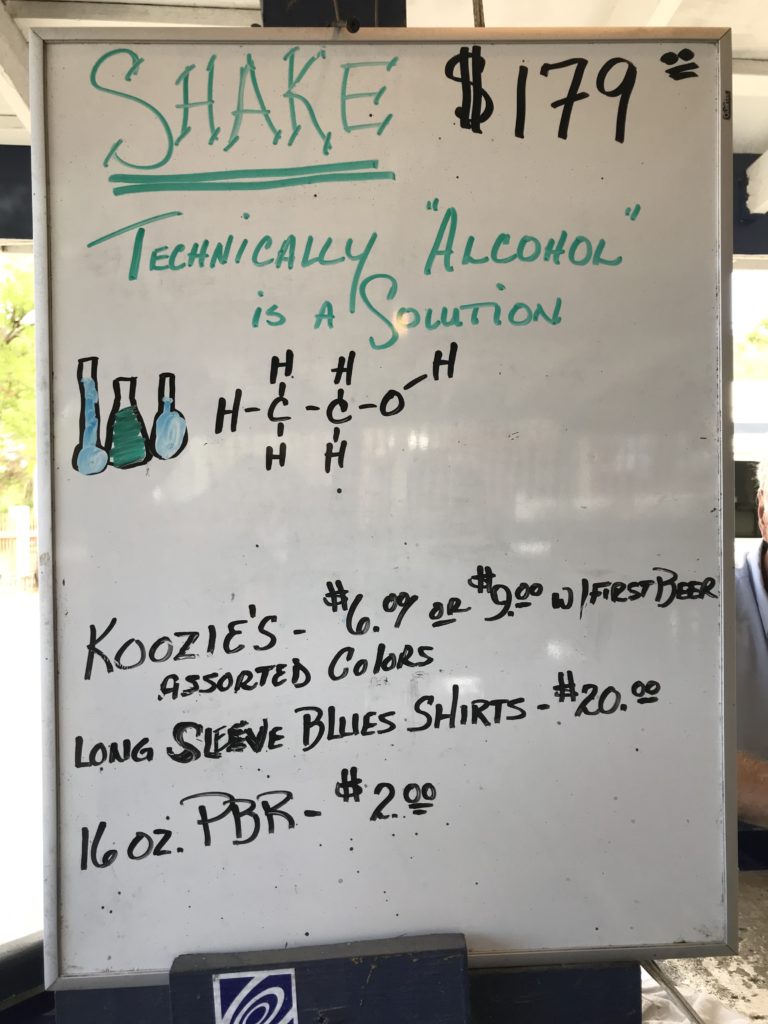 SHAKE $179.00
TECHNICALLY "ALCOHOL"
IS A SOLUTION
H H
H-C-C-O-H
H H
KOOZIE'S - $6.09 OR $9.00 W/FIRST BEER
ASSORTED COLORS
LONG SLEEVE BLUES SHIRTS - $20.00
16 OZ. PBR - $2.00